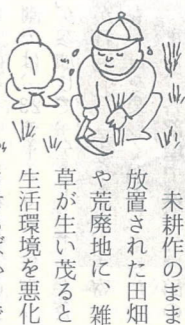 未耕作のまま
放置された田畑
や荒廃地に、雑
草が生い茂ると
生活環境を悪化